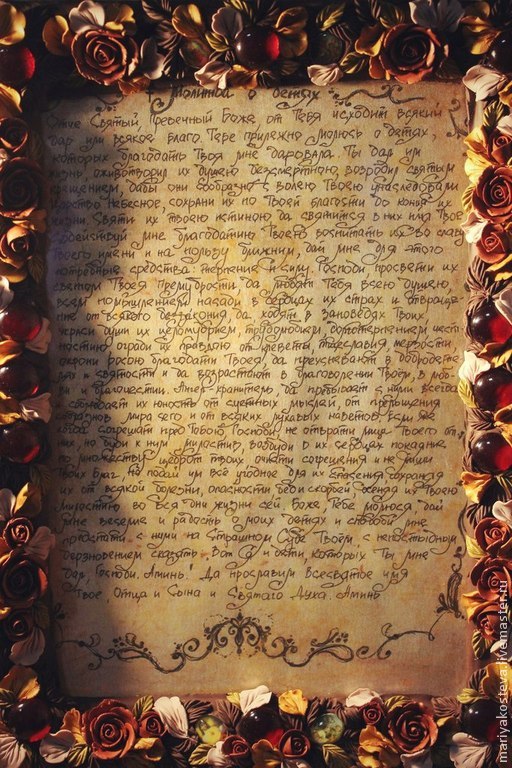 Молитва о детях
Отче Святый, Превечный Боже, от Тебя исходит всякий
дар или всякое благо. Тебе прилежно молюсь о детях,
которых благодать Твоя мне даровала. Ты дал им
жизнь, оживотворил их душею безсмертною, возродил святым
крещением, дабы они сообразно с волею Твоею унаследовали
Царство Небесное, сохрани их по Твоей благости до конца их
жизни. Святи их твоею истиною, да святится в них имя Твое.
Содействуй мне благодатию Твоею воспитать их во славу
твоего имени и на пользу ближним, дай мне для этого
потребные средства: терпение и силу. Господи просвети их
светом Твоея Премудрости, да любят Тебя всею душею,
всем помышлением, насади в сердцах их страх и отвращение
ние от всякого беззакония, да ходят в заповедях Твоих,
украси души их целомудрием, трудолюбием, долготерпением, чест
ностию, огради их правдою от клеветы, тщеславия, мерзости,
окропи росою благодати Твоея, да преуспевают в добродете
лях и святости и да возрастают в благоволении Твоем, в люб
ви и благочестии. Ангел-хранитель да пребывает с ними всегда
и соблюдает их юность от суетных мыслей, от прельщения
соблазнов мира сего и от всяких лукавых наветов. Если же
когда согрешат пред Тобою Господи, не отврати лица Твоего от
них, но буди к ним милостив, возбуди в их сердцах покаяние
по множеству щедрот твоих, очисти согрешения и не лиши
твоих благ, но подай им всё угодное для их Спасения, сохраняя
их от всякой болезни, опасности, бед и скорбей, осеняя их Твоею
милостию во вся дни жизни сей. Боже, Тебе молюся, дай
мне веселие и радость о моих детях и сподоби мне
предстати с ними на Страшном Суде Твоем, с непостыдным
дерзновением сказать: "Вот я и дети, которых Ты мне
дал, Господи. Аминь." Да прославим Всесвятое имя
Твое, Отца и Сына и Святаго Духа. Аминь
mariyakosteva.livemaster.ru